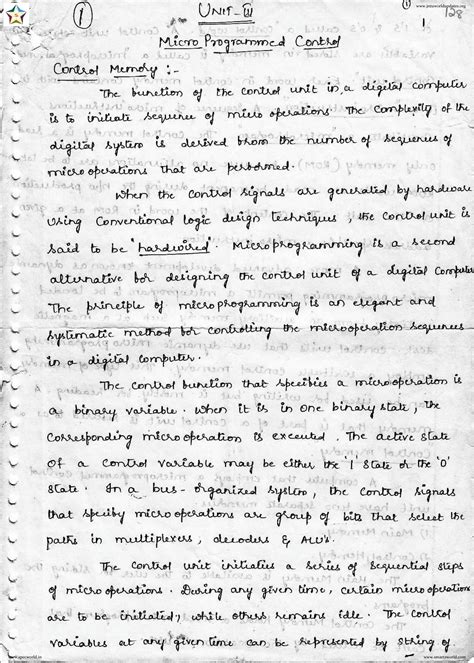 www.jntuworldupdates.org
① UNIT-III 1 128
Micro Programmed Control
Control Memory :-
The bunction of the control unit in a digital computer
is to initiate sequence of micro operations. The complexity of the
digital system is derived brom the number of sequences of
micro operations that are performed.
When the control signals are generated by hardware
using Conventional logic design techniques, the control unit is
said to be "hardwired". Microprogramming is a second
alternative bor designing the control unit of a digital Computer
The principle of microprogramming is an elegant and
systematic method bor controlling the microoperation sequences
in a digital computer.
The control bunction that specibies a microoperation is
a binary variable. When it is in one binary state, the
corresponding microoperation is executed. The active state
of a control variable may be either the '1' state or the '0'
state. In a bus-organized system, the control signals
that speciby microoperations are group of bits that select the
paths in multiplexers, decoders & ALU's.
The control unit initiaties a series of Sequential steps
of microoperations. During any given time, certain microoperations
are to be initiated, while others remains idle. The control
variables at any given time can be represented by string of